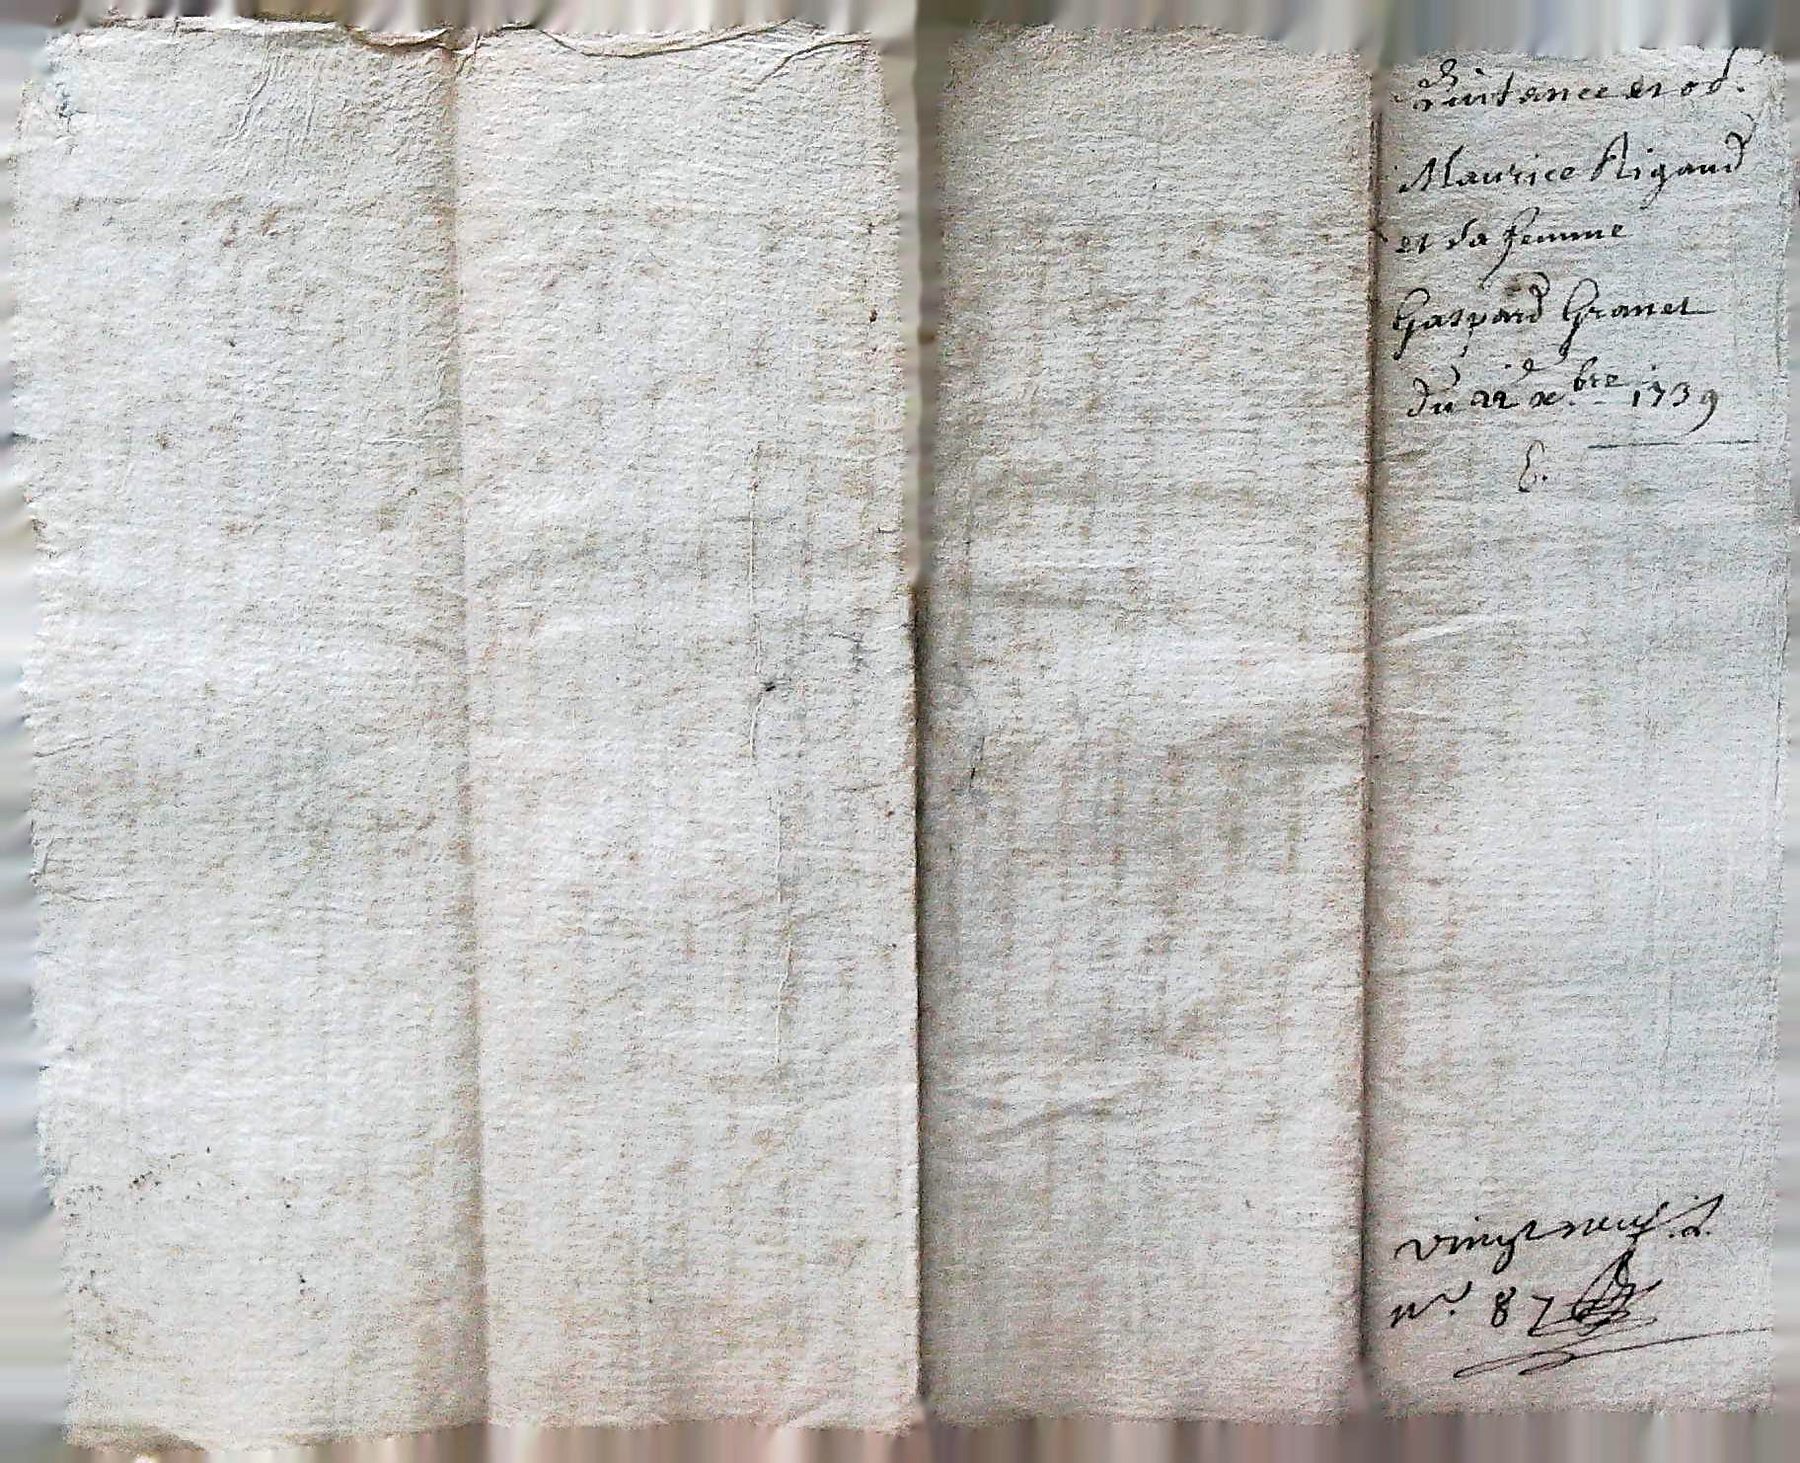 Quitance et od.
Maurice Rigaud
et sa femme
Gaspard Granet
du 22e xbre 1739
E.
vingt neuf
n°. 87